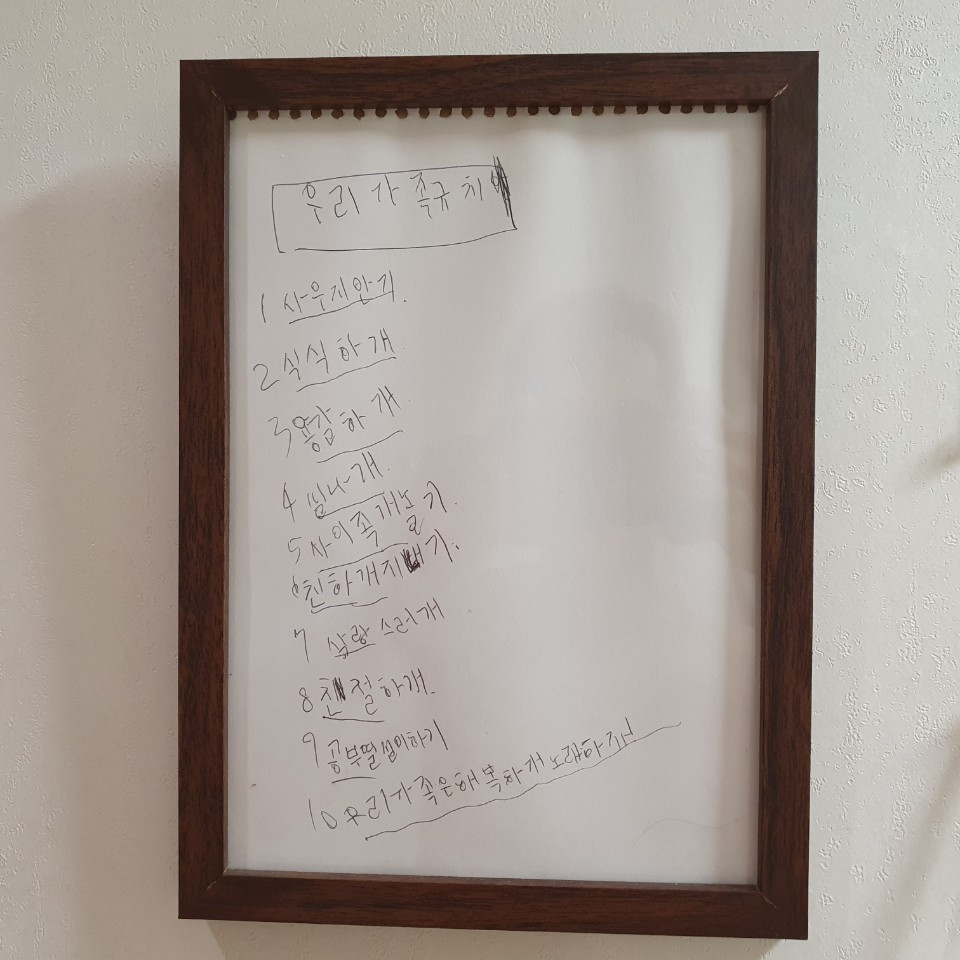 우리가족규치
1 사우지안기.
2 식식하개.
3 용감하개.
4 씸나개.
5 사이족개놀기.
6 친하개지내기.
7 사랑스러개
8 친절하개.
9 공부열심이하기
10 우리가족은해복하개노래하자